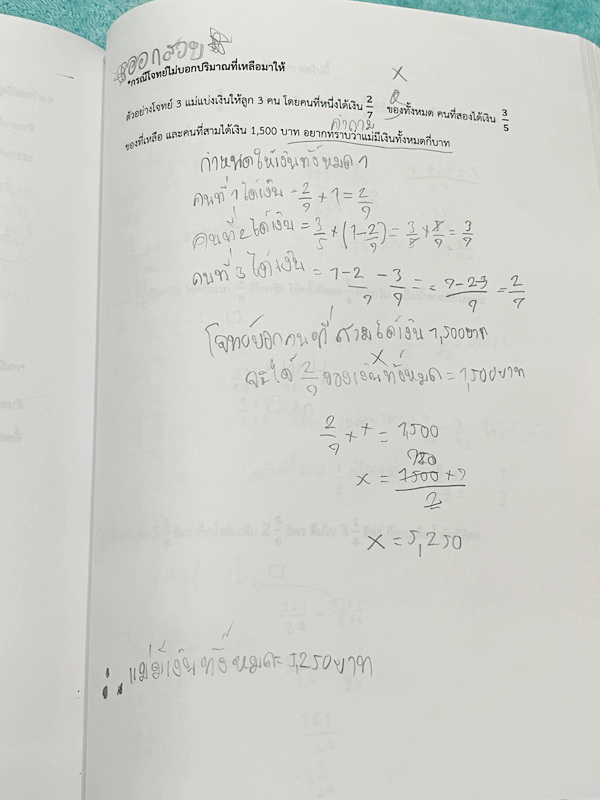 ออกสอบ
*กรณีโจทย์ไม่บอกปริมาณที่เหลือมาให้
x
ตัวอย่างโจทย์ 3 แม่แบ่งเงินให้ลูก 3 คน โดยคนที่หนึ่งได้เงิน 2/7 ของทั้งหมด คนที่สองได้เงิน 3/5
คำถาม
ของที่เหลือ และคนที่สามได้เงิน 1,500 บาท อยากทราบว่าแม่มีเงินทั้งหมดกี่บาท
กำหนดให้เงินทั้งหมด 1
คนที่ 1 ได้เงิน = 2/7 × 1 = 2/7
คนที่ 2 ได้เงิน = 3/5 × (1 - 2/7) = 3/5 × 5/7 = 3/7
คนที่ 3 ได้เงิน = 1 - 2/7 - 3/7 = 7-2-3/7 = 2/7
โจทย์บอกคนที่สามได้เงิน 1,500บาท
x
จะได้ 2/7 ของเงินทั้งหมด = 1,500บาท
2/7 × x = 1,500
750
x = 1500 × 7/2
x = 5,250
∴ แม่มีเงินทั้งหมด = 5,250 บาท